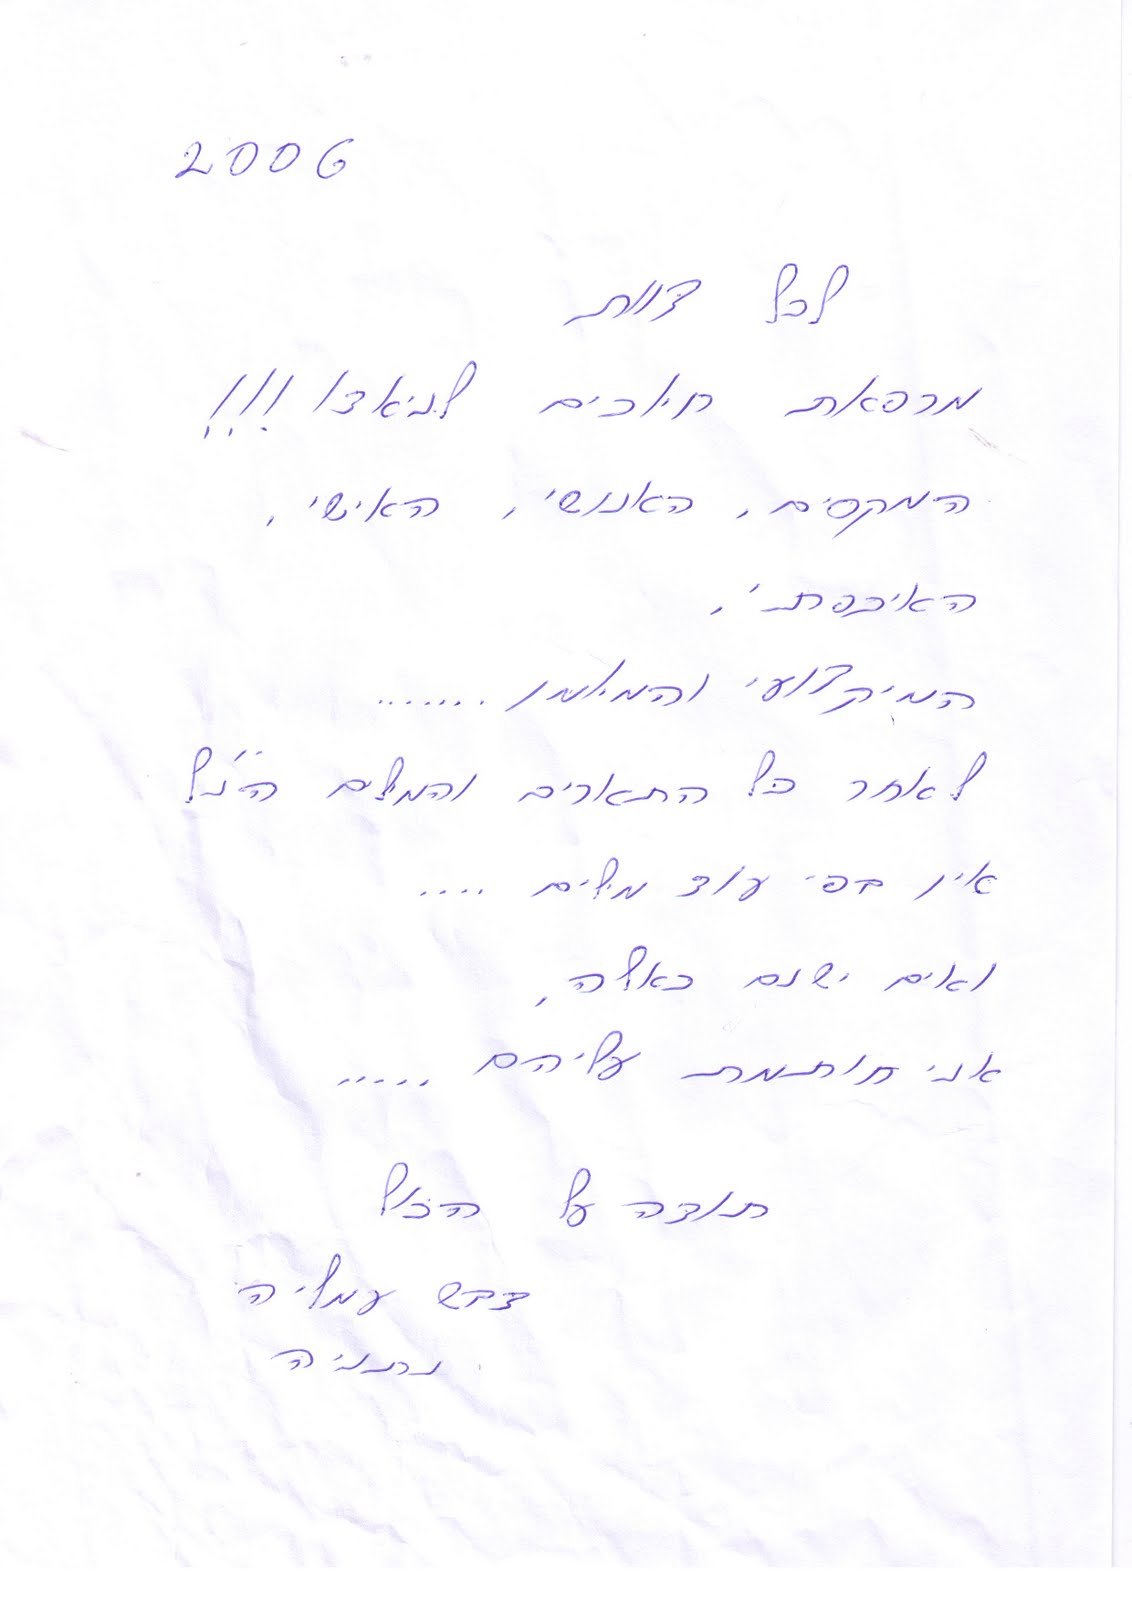 2006
לכל צוות
מרפאת חיוכים לניאדו!!!
המקסים, האנושי, האישי,
האיכפתי,
המיקצועי והמיומן .......
לאחר כל התוארים והמלים הנ"ל
אין בפי עוד מילים ....
ואים ישנם כאלה,
אני חותמת עליהם .....
תודה על הכל
דבש עמליה
נתניה